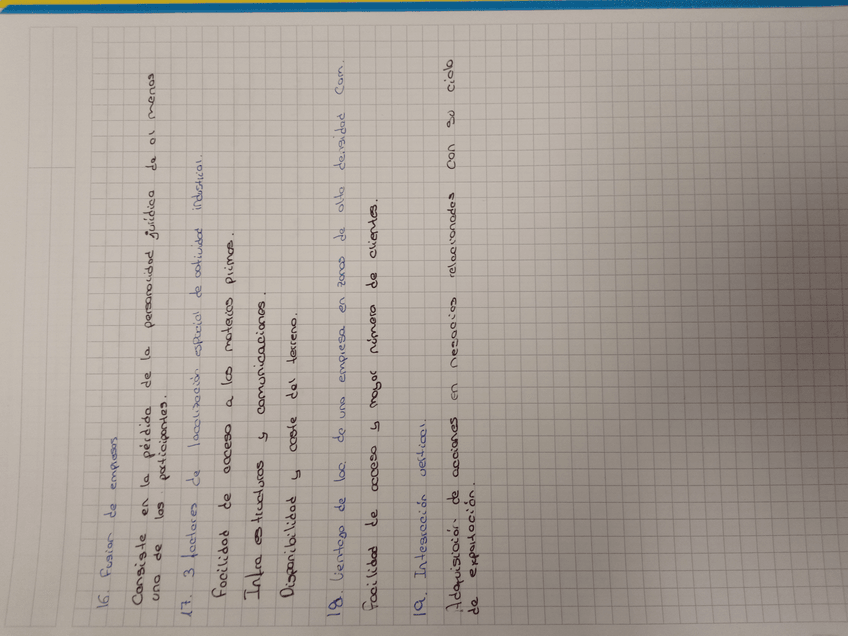 16. Fusión de empresas
Consiste en la pérdida de la personalidad jurídica de al menos
uno de los participantes.
17. 3 factores de localización espacial de actividad industrial.
Facilidad de acceso a las materias primas.
Infraestructuras y comunicaciones.
Disponibilidad y coste del terreno.
18. Ventaga de loc. de una empresa en zonas de alta densidad com.
Facilidad de acceso y mayor número de clientes.
19. Integración vertical.
Adquisición de acciones en negocios relacionados con su ciclo
de expaitación.